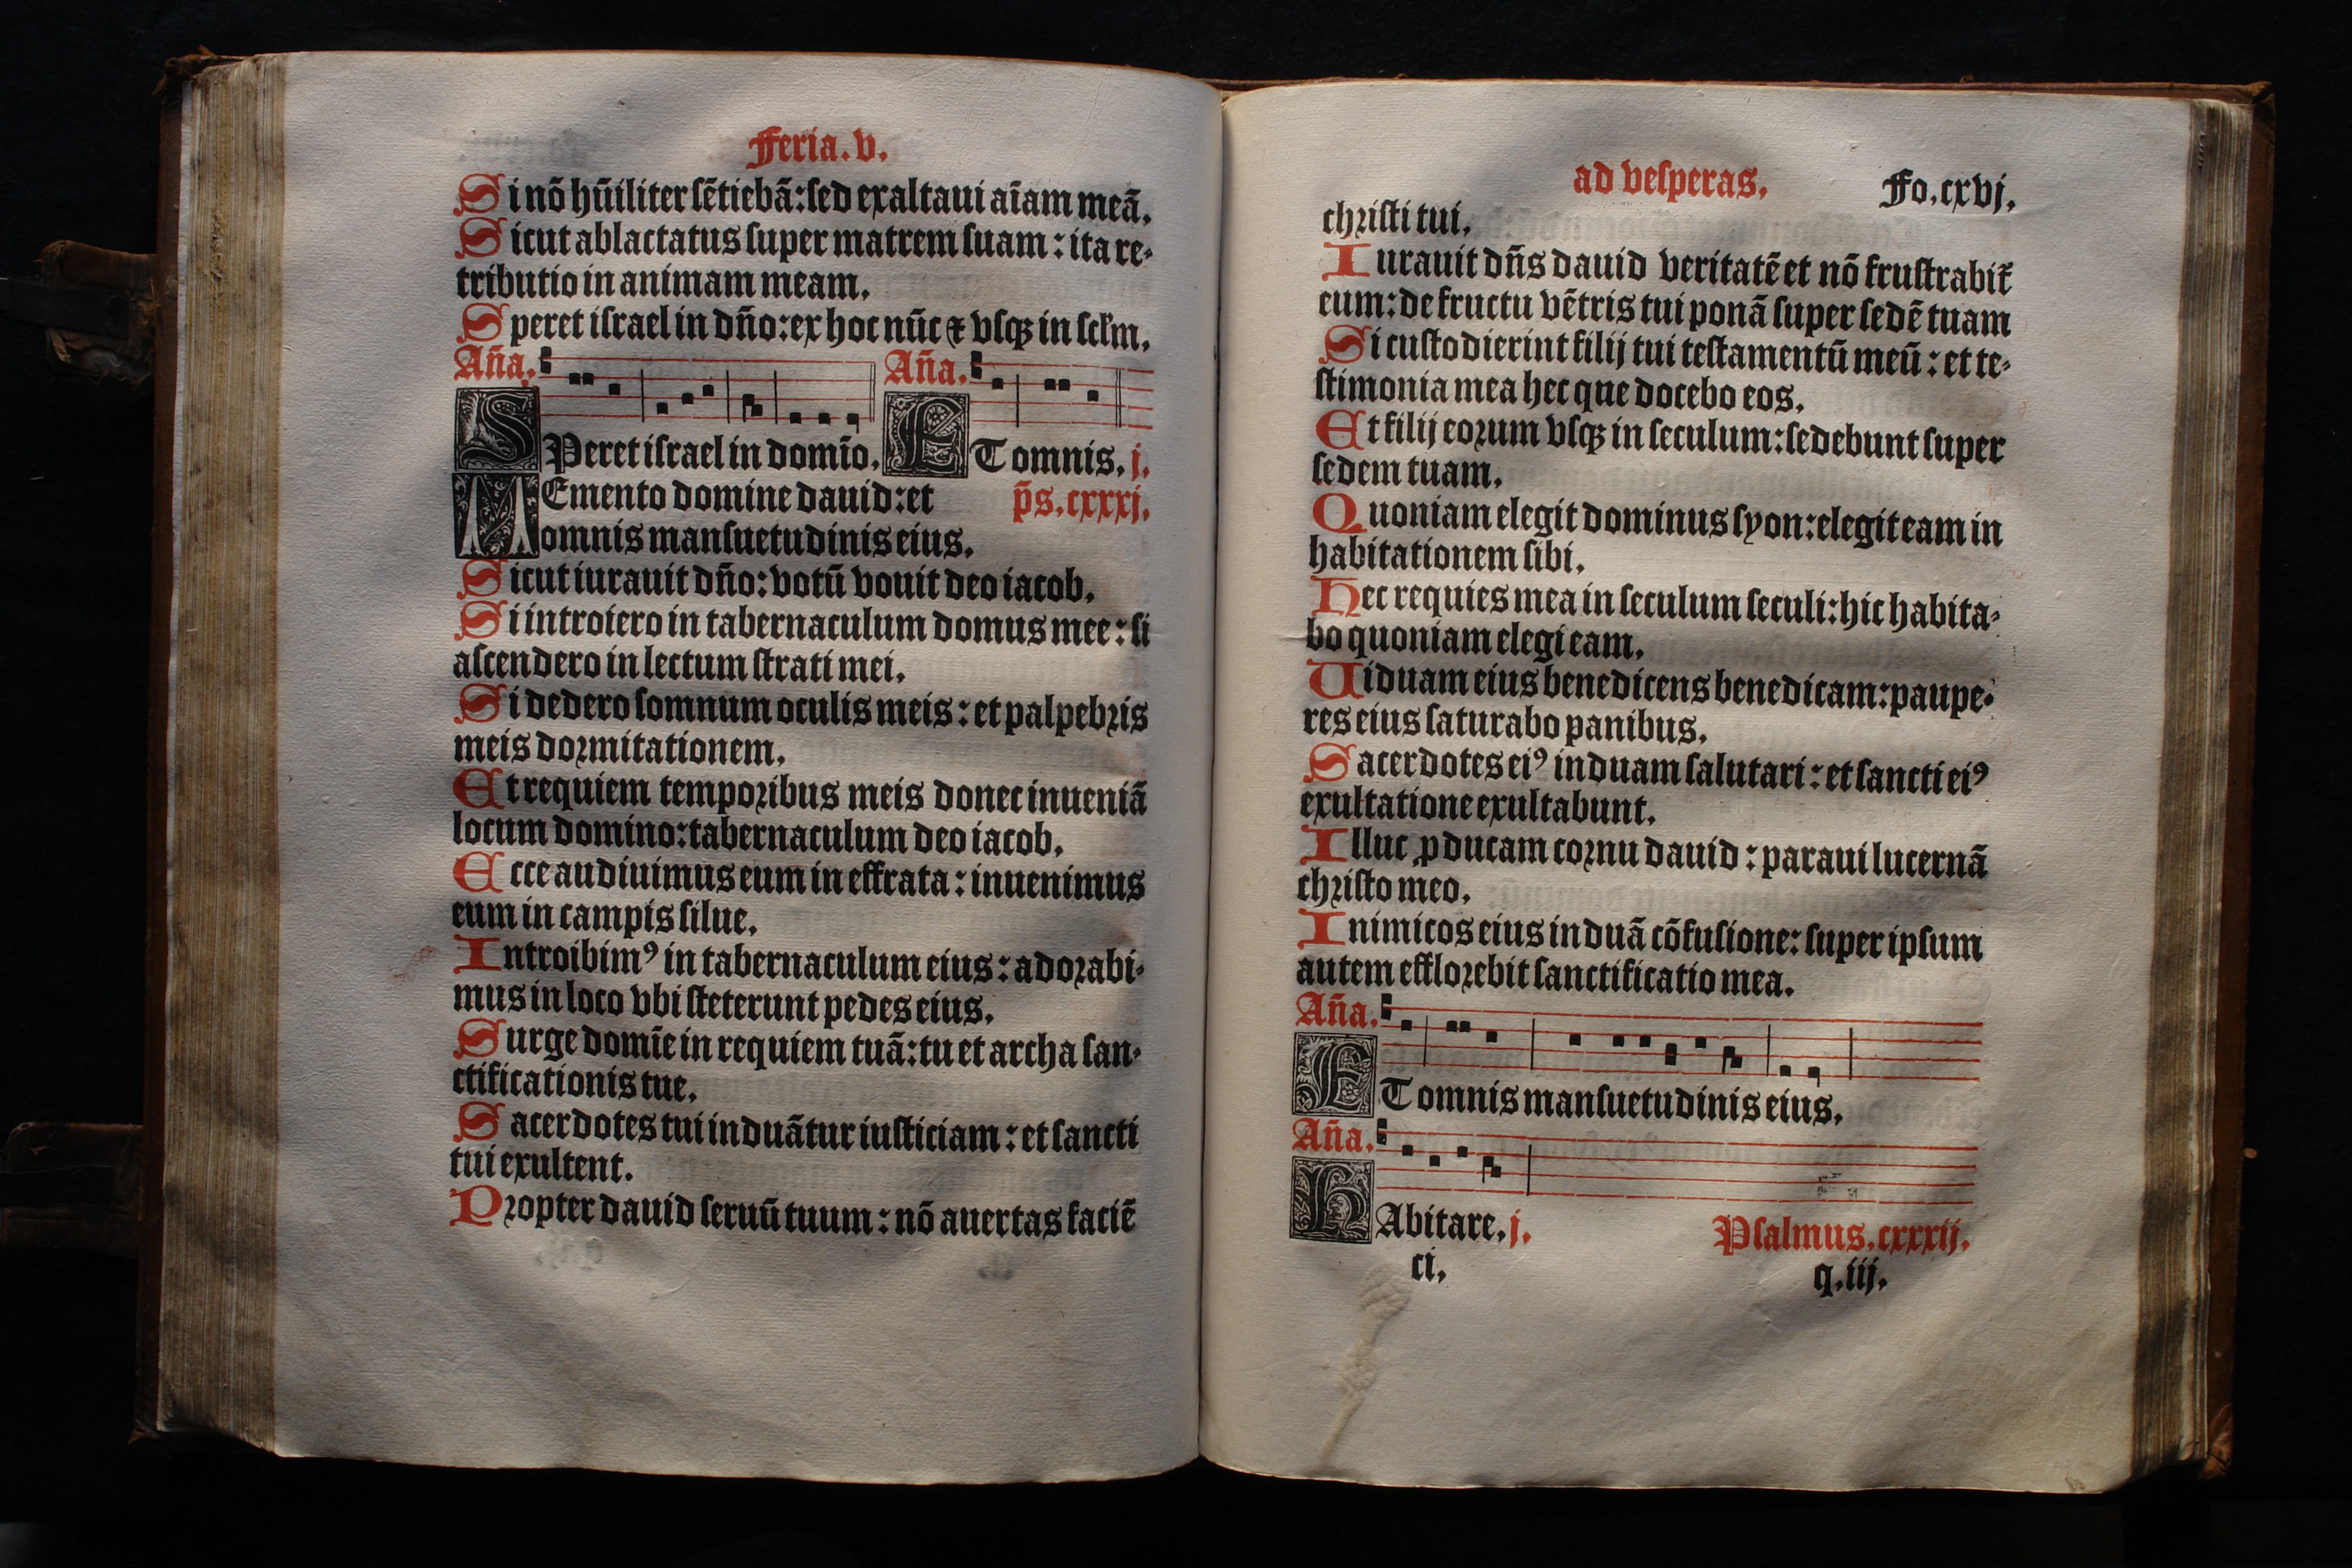 Feria.v.
Si nō hūiliter sētiebā:sed exaltaui aīam meā.
Sicut ablactatus super matrem suam : ita re-
tributio in animam meam.
Speret israel in dño:ex hoc nūc ⁊ vsqꝫ in sclm̄.
Aña. Aña.
SPeret israel in domīo. ET omnis. j.
MEmento domine dauid:et p̄s.cxxxj.
omnis mansuetudinis eius.
Sicut iurauit dño:votū vouit deo iacob.
Si introiero in tabernaculum domus mee : si
ascendero in lectum strati mei.
Si dedero somnum oculis meis : et palpebris
meis dormitationem.
Et requiem temporibus meis donec inueniā
locum domino:tabernaculum deo iacob.
Ecce audiuimus eum in effrata : inuenimus
eum in campis silue.
Introibimꝰ in tabernaculum eius : adorabi-
mus in loco vbi steterunt pedes eius.
Surge domīe in requiem tuā:tu et archa san-
ctificationis tue.
Sacerdotes tui induātur iusticiam : et sancti
tui exultent.
Propter dauid seruū tuum : nō auertas faciē
ad vesperas. Fo.cxvj.
christi tui.
Iurauit dñs dauid veritatē et nō frustrabit᷑
eum:de fructu vētris tui ponā super sedē tuam
Si custodierint filij tui testamentū meū : et te-
stimonia mea hec que docebo eos.
Et filij eorum vsqꝫ in seculum:sedebunt super
sedem tuam.
Quoniam elegit dominus syon:elegit eam in
habitationem sibi.
Hec requies mea in seculum seculi:hic habita-
bo quoniam elegi eam.
Uiduam eius benedicens benedicam:paupe-
res eius saturabo panibus.
Sacerdotes eiꝰ induam salutari : et sancti eiꝰ
exultatione exultabunt.
Illuc ꝓducam cornu dauid : paraui lucernā
christo meo.
Inimicos eius induā cōfusione: super ipsum
autem efflorebit sanctificatio mea.
Aña.
ET omnis mansuetudinis eius.
Aña.
HAbitare. j. Psalmus.cxxxij.
ci. q.iij.